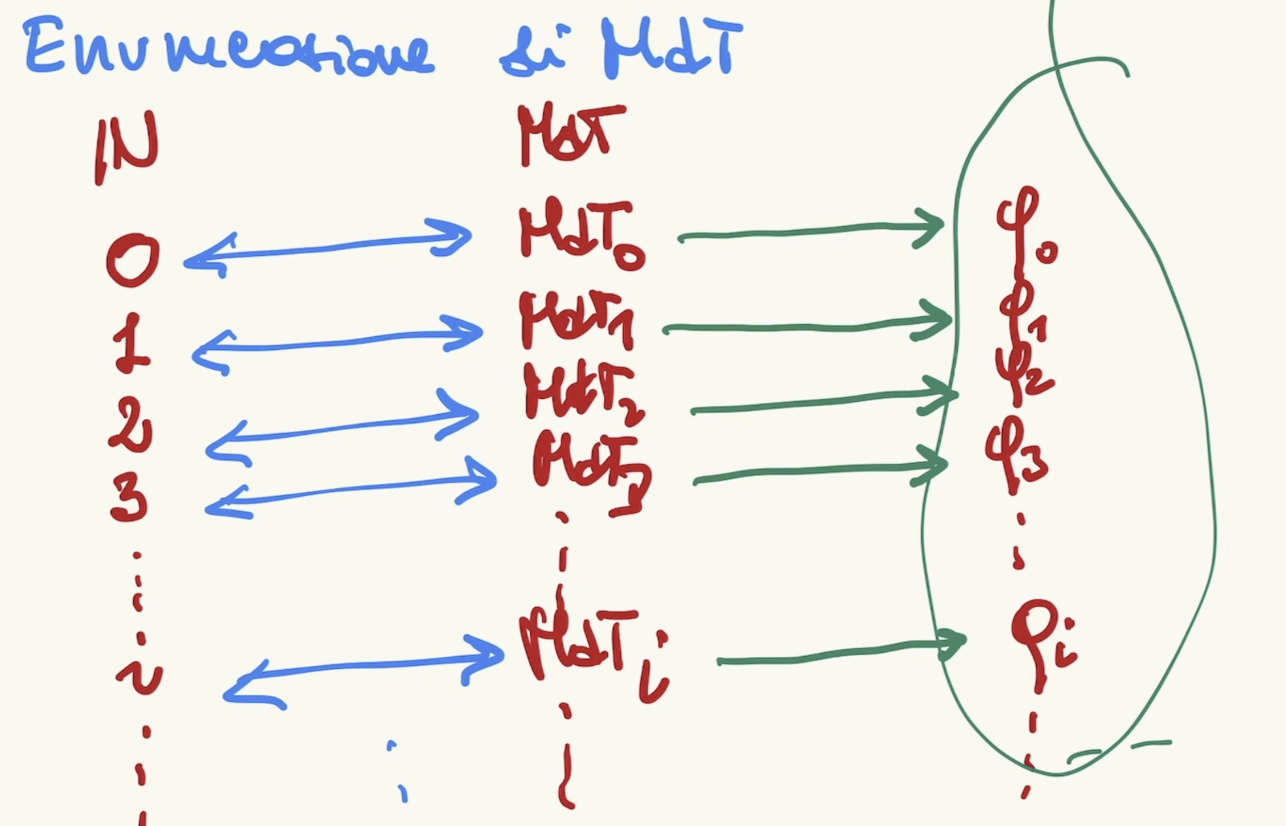 Enumerazione di MdT
IN MdT
0 MdT₀ φ₀
1 MdT₁ φ₁
2 MdT₂ φ₂
3 MdT₃ φ₃
i MdTᵢ φᵢ